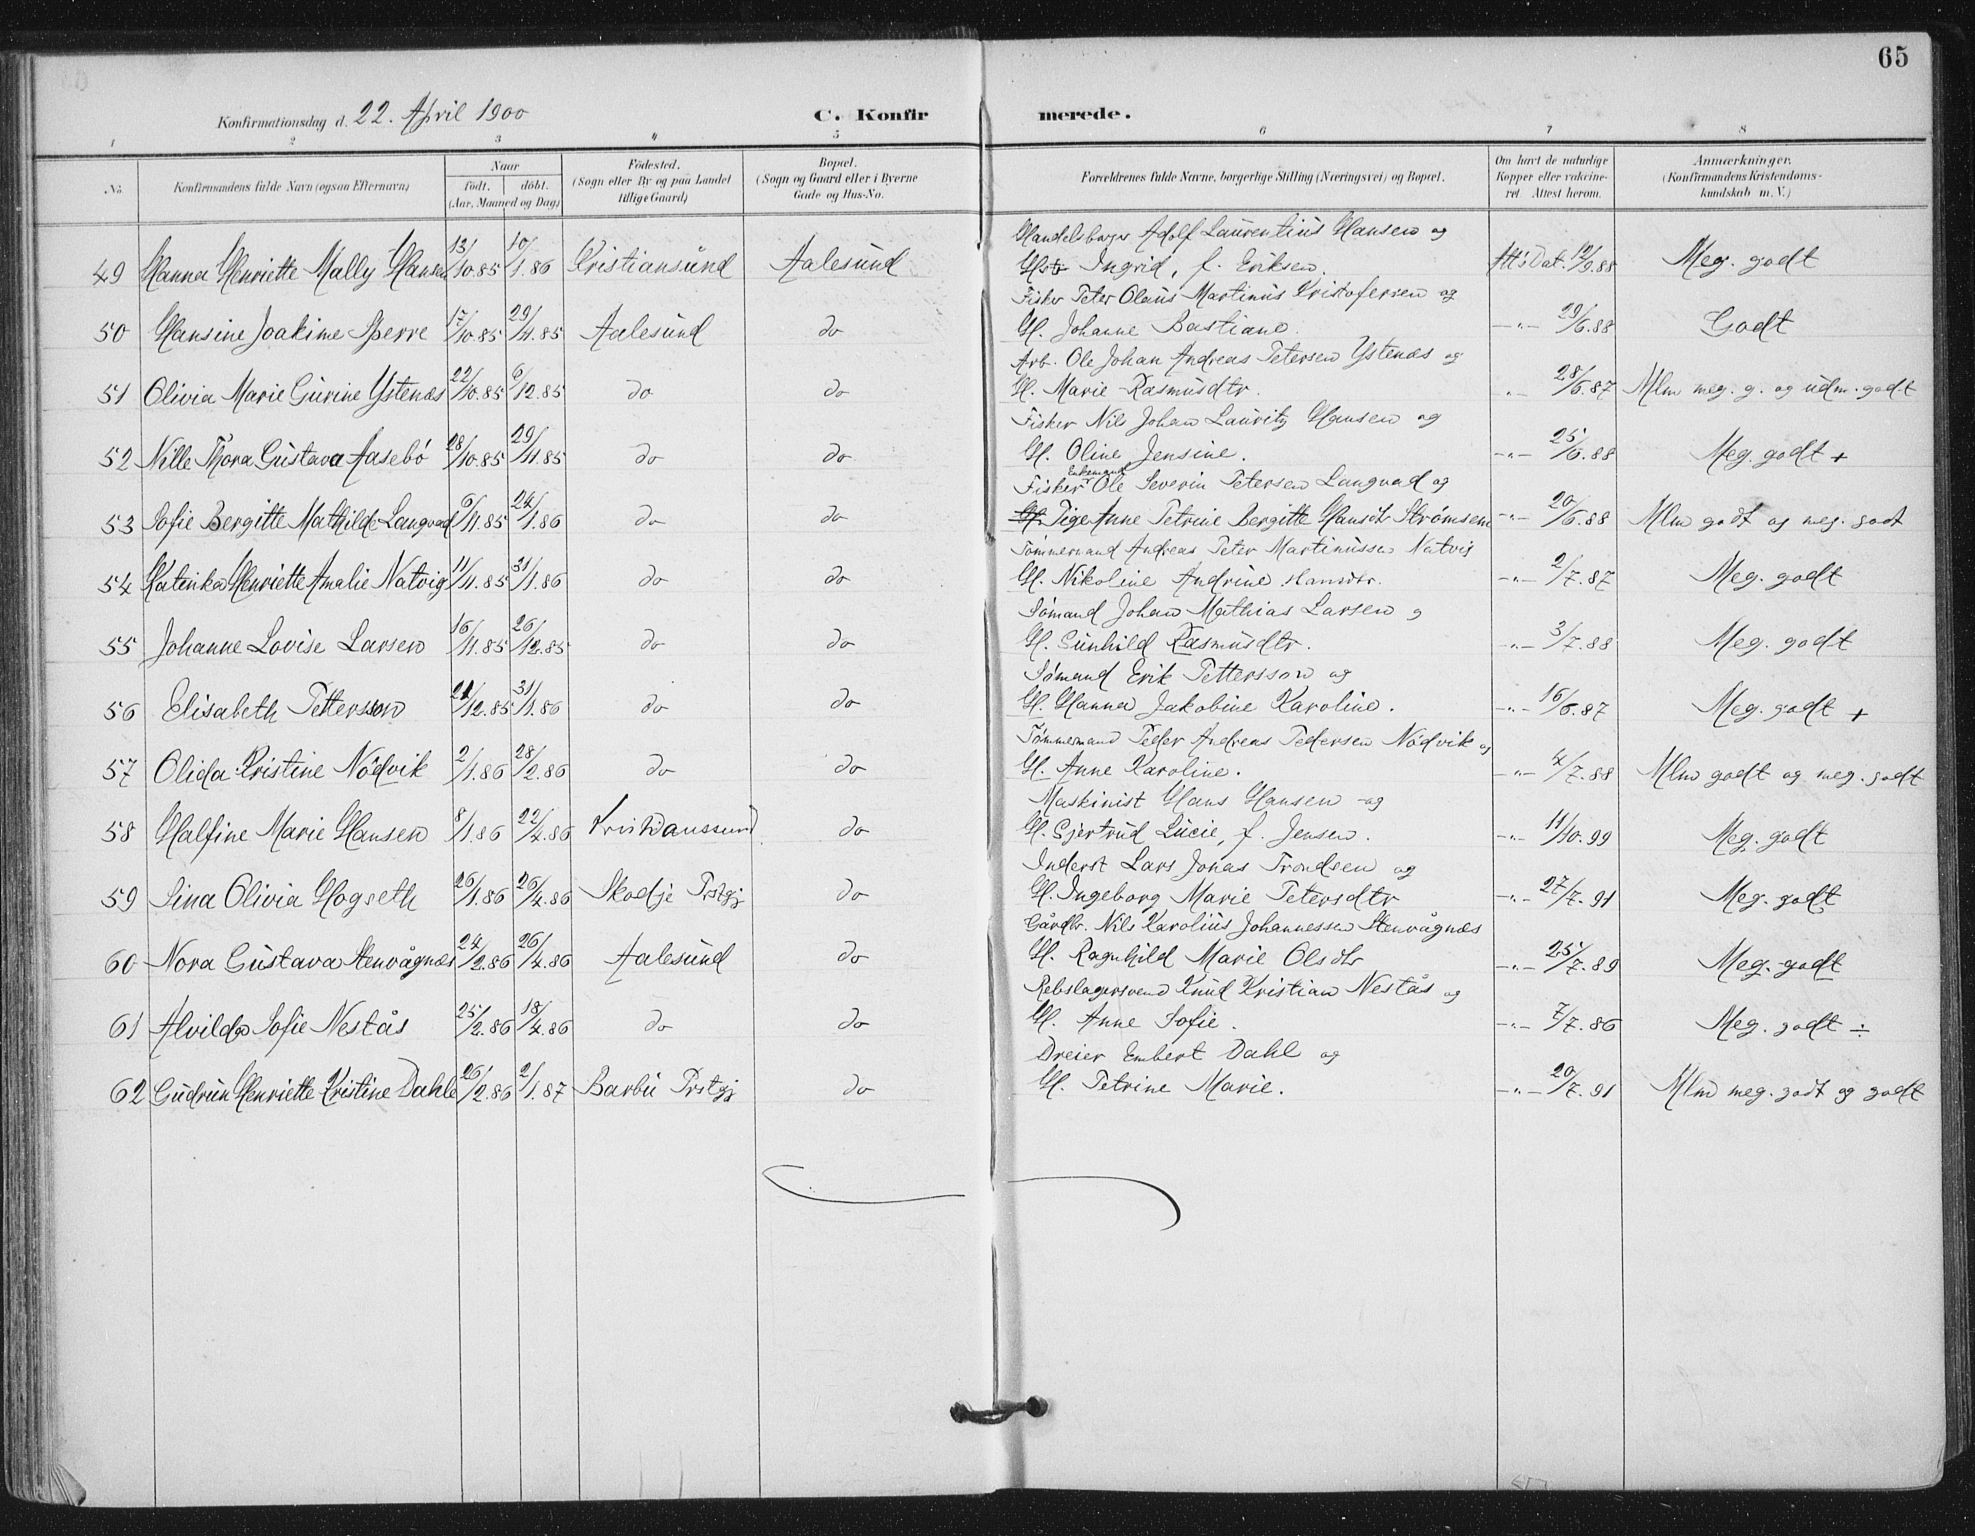 65
Konfirmationsdag d. 22. April 1900
C. Konfirmerede.
1 2 3 4 5 6 7 8
No. Konfirmandens fulde Navn (ogsaa Efternavn) Naar født. døbt. (Aar, Maaned og Dag) Fødested. (Sogn eller By og paa Landet tillige Gaard) Bopæl. (Sogn og Gaard eller i Byerne Gade og Hus-No. Forældrenes fulde Navne, borgerlige Stilling (Næringsvei) og Bopæl. Om havt de naturlige Kopper eller vakcineret. Attest herom. Anmærkninger. (Konfirmandens Kristendomskundskab m. V.)
Handelsborger Adolf Laurentius Hansen og
49 Hanna Henriette Mally Hansen 13/10.85 10/1.86 Kristiansund Aalesund Hstr Ingrid, f. Eriksen. Att's Dat. 12/9.88 Meg. godt
Fisker Peter Olaus Martinus Kristofersen og
50 Hansine Joakime Sperre 17/10.85 29/11.85 Aalesund do H. Johanne Bastiane. -"- 29/6.88 Godt
Arb. Ole Johan Andreas Petersen Ystenæs og
51 Olivia Marie Gurine Ystenæs 22/10.85 6/12.85 do do H. Marie Rasmusdtr. "- 28/6.87 Mlm meg. g. og udm. godt
Fisker Nils Johan Lauritz Hansen og
52 Nille Thora Gustava Aasebö 28/10.85 29/11.85 do do H. Oline Jensine. -"- 25/6.88 Meg. godt +
Fisker Enkemand Ole Severin Petersen Langvad og
53 Sofie Bergitte Mathilde Langvad 6/11.85 24/1.86 do do H. Pige Anne Petrine Bergitte Hansdtr Strømsem -"- 20/6.88 Mlm godt og meg. godt
Tømmermand Andreas Peter Martinussen Natvig
54 Katinka Henriette Amalie Natvig 11/11.85 31/1.86 do do H. Nikoline Andrine Hansdtr. -"- 2/7.87 Meg. godt
Sømand Johan Mathias Larsen og
55 Johanne Lovise Larsen 16/11.85 26/12.85 do do H. Gunhild Rasmusdtr. -"- 3/7.88 Meg. godt
Sømand Erik Pettersson og
56 Elisabeth Pettersson 21/12.85 31/1.86 do do H. Hanna Jakobine Karoline. -"- 16/6.87 Meg. godt +
Tømmermand Peder Andreas Pedersen Nödvik og
57 Olida Kristine Nödvik 2/1.86 28/2.86 do do H. Anne Karoline. -"- 4/7.88 Mlm godt og meg. godt
Maskinist Hans Hansen og
58 Halfine Marie Hansen 8/1.86 22/4.86 Kristianssund do H. Gjertrud Lucie, f. Jensen. -"- 11/10.99 Meg. godt
Inderst Lars Jonas Trondsen og
59 Sina Olivia Hogseth 26/1.86 26/4.86 Skodje Prstgj do H. Ingeborg Marie Petersdtr -"- 27/7.91 Meg. godt
Gårdbr. Nils Karolius Johannessen Stenvågnæs
60 Nora Gustava Stenvågnæs 24/2.86 26/4.86 Aalesund do H. Ragnhild Marie Olsdtr -"- 25/7.89 Meg. godt
Rebslagersvend Knud Kristian Nestås og
61 Alvilda Sofie Nestås 25/2.86 18/4.86 do do H. Anne Sofie. -"- 7/7.86 Meg. godt ÷
Dreier Embert Dahl og
62 Gudrun Henriette Kristine Dahle 26/2.86 2/1.87 Barbu Prstgj do H. Petrine Marie. -"- 20/7.91 Mlm meg. godt og godt